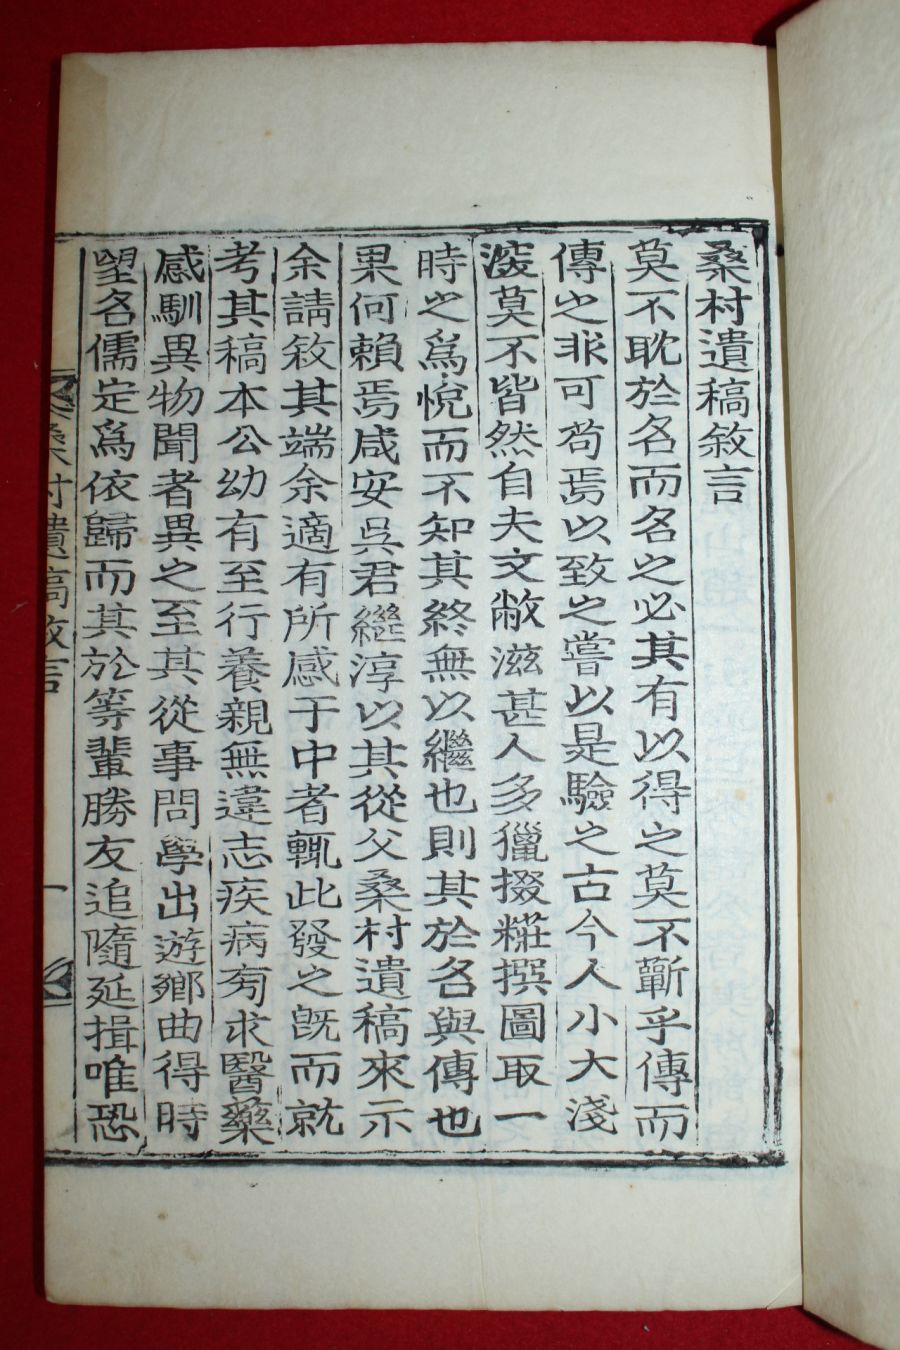 桑村遺稿敘言
莫不耽於名而名之必其有以得之莫不蘄乎傳而
傳之非可苟焉以致之嘗以是驗之古今人小大淺
深莫不皆然自夫文敝滋甚人多獵掇糚撰圖取一
時之爲悅而不知其終無以繼也則其於名與傳也
果何賴焉咸安吳君繼淳以其從父桑村遺稿來示
余請敘其端余適有所感于中者輒此發之旣而就
考其稿本公幼有至行養親無違志疾病旁求醫藥
感馴異物聞者異之至其從事問學出遊鄉曲得時
望名儒定爲依歸而其於等輩勝友追隨延揖唯恐
桑村遺稿敘言
一